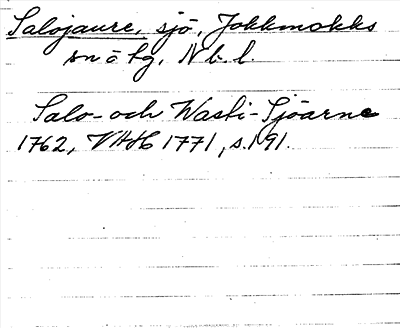 Salojaure, sjö, Jokkmokks
sn o hg, Nb. l.
Salo- och Wasti-Sjöarne
1762, VAH 1771, s. 191.